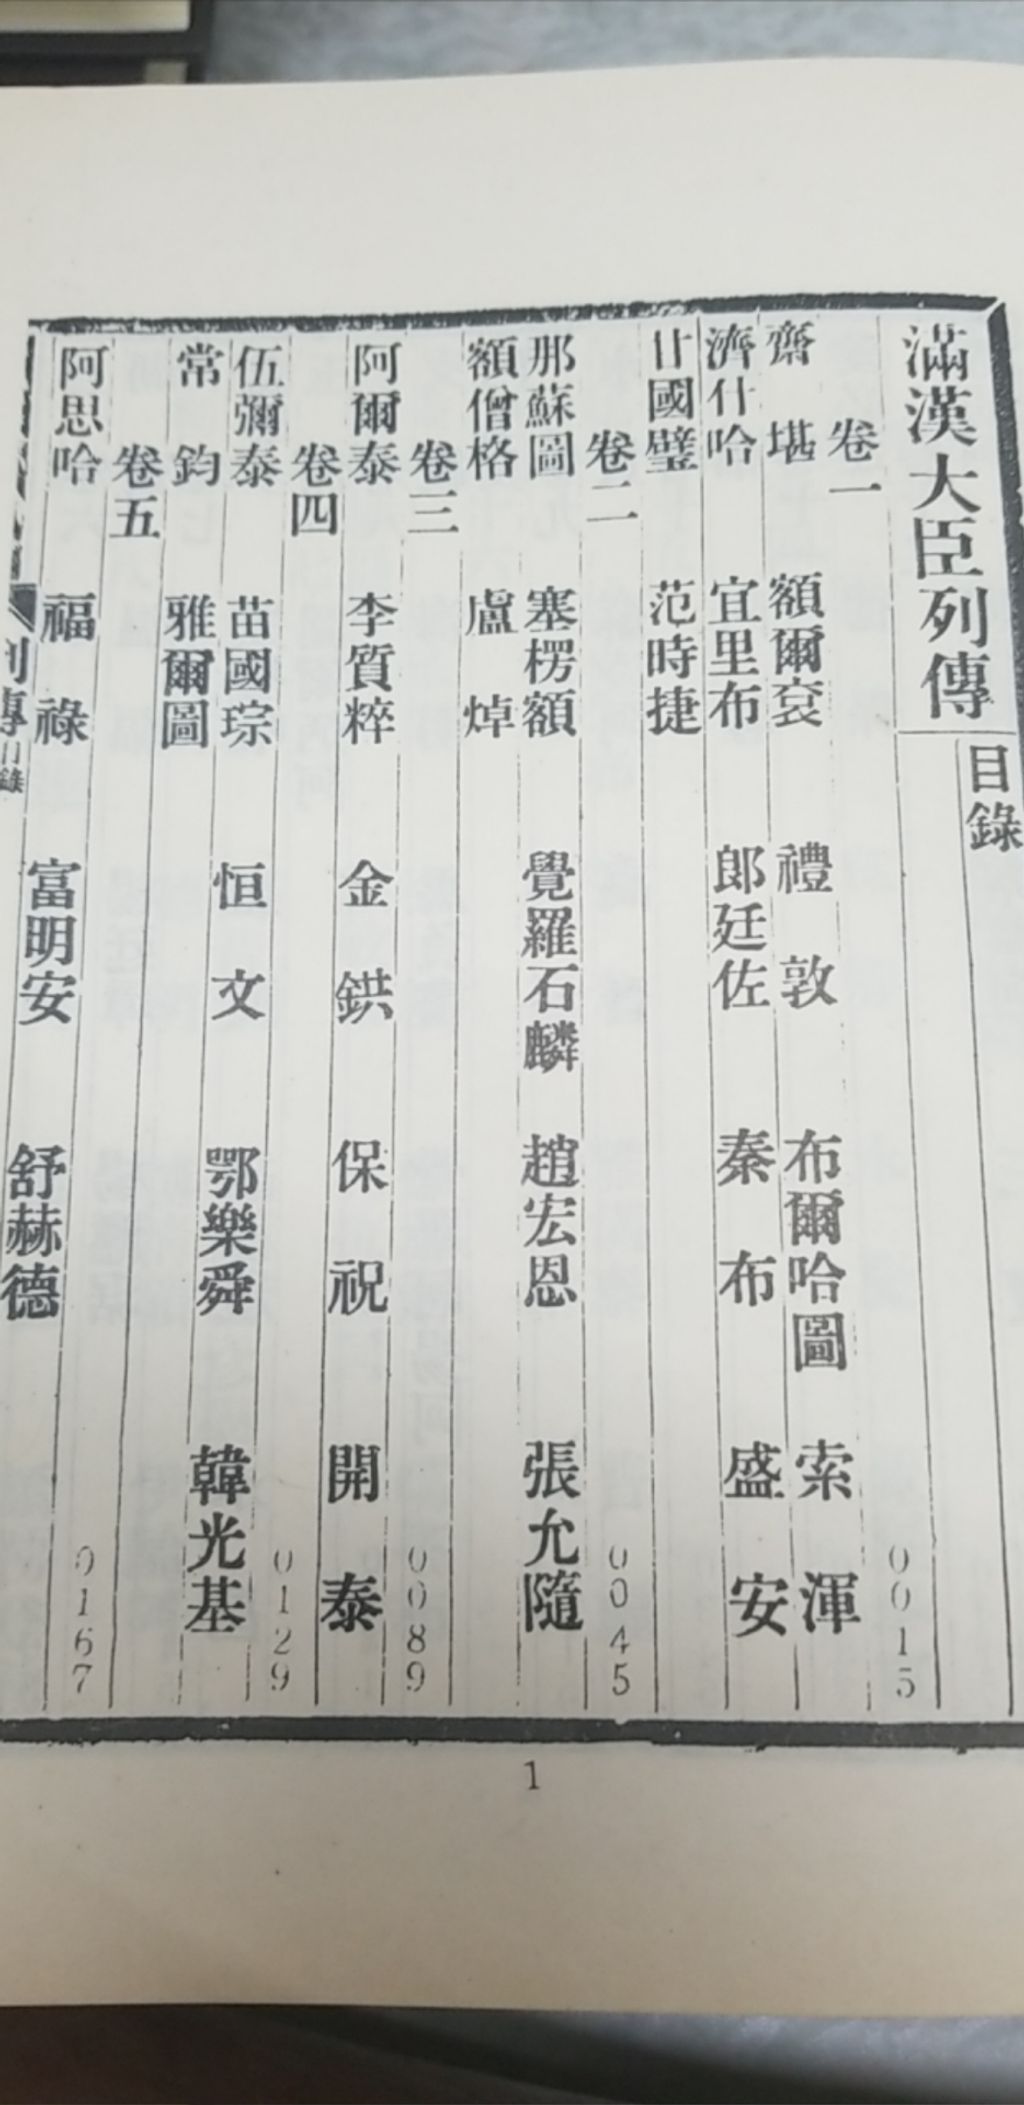 滿漢大臣列傳
目錄
卷一
0015
齋堪 額爾袞 禮敦 布爾哈圖 索渾
濟什哈 宜里布 郎廷佐 秦布 盛安
甘國璧 范時捷
卷二
0045
那蘇圖 塞楞額 覺羅石麟 趙宏恩 張允隨
額僧格 盧焯
卷三
0089
阿爾泰 李質粹 金鉷 保祝 開泰
卷四
0129
伍彌泰 苗國琮 恒文 鄂樂舜 韓光基
常鈞 雅爾圖
卷五
0167
阿思哈 福祿 富明安 舒赫德
列傳目錄
1